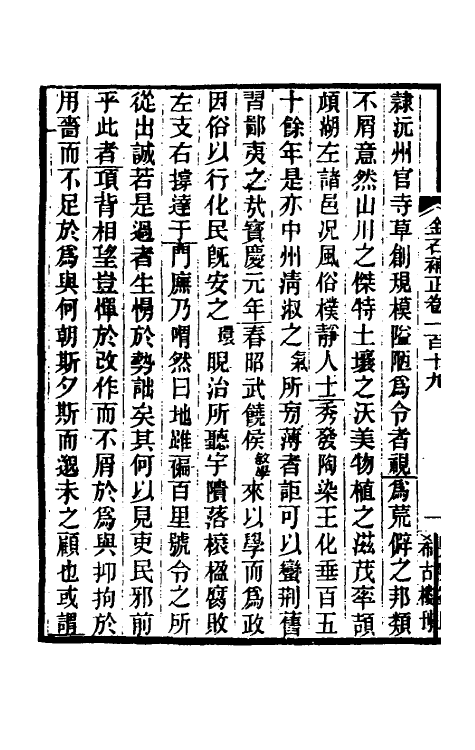 金石補正卷一百十九
一
希古樓刊
隸沅州官寺草創規模隘陋爲令者視爲荒僻之邦類
不屑意然山川之傑特土壤之沃美物植之滋茂率頡
頏湖左諸邑況風俗樸靜人士秀發陶染王化垂百五
十餘年是亦中州淸淑之氣所旁薄者詎可以蠻荆舊
習鄙夷之㢤寶慶元年春昭武饒侯敏學來以學而爲政
因俗以行化民旣安之環睨治所聽宇隤落榱楹腐敗
左支右撐達于門廉乃喟然曰地雖褊百里號令之所
從出誠若是過者生愓於勢詘矣其何以見吏民邪前
乎此者項背相望豈憚於改作而不屑於爲與抑拘於
用嗇而不足於爲與何朝斯夕斯而邈未之顧也或謂